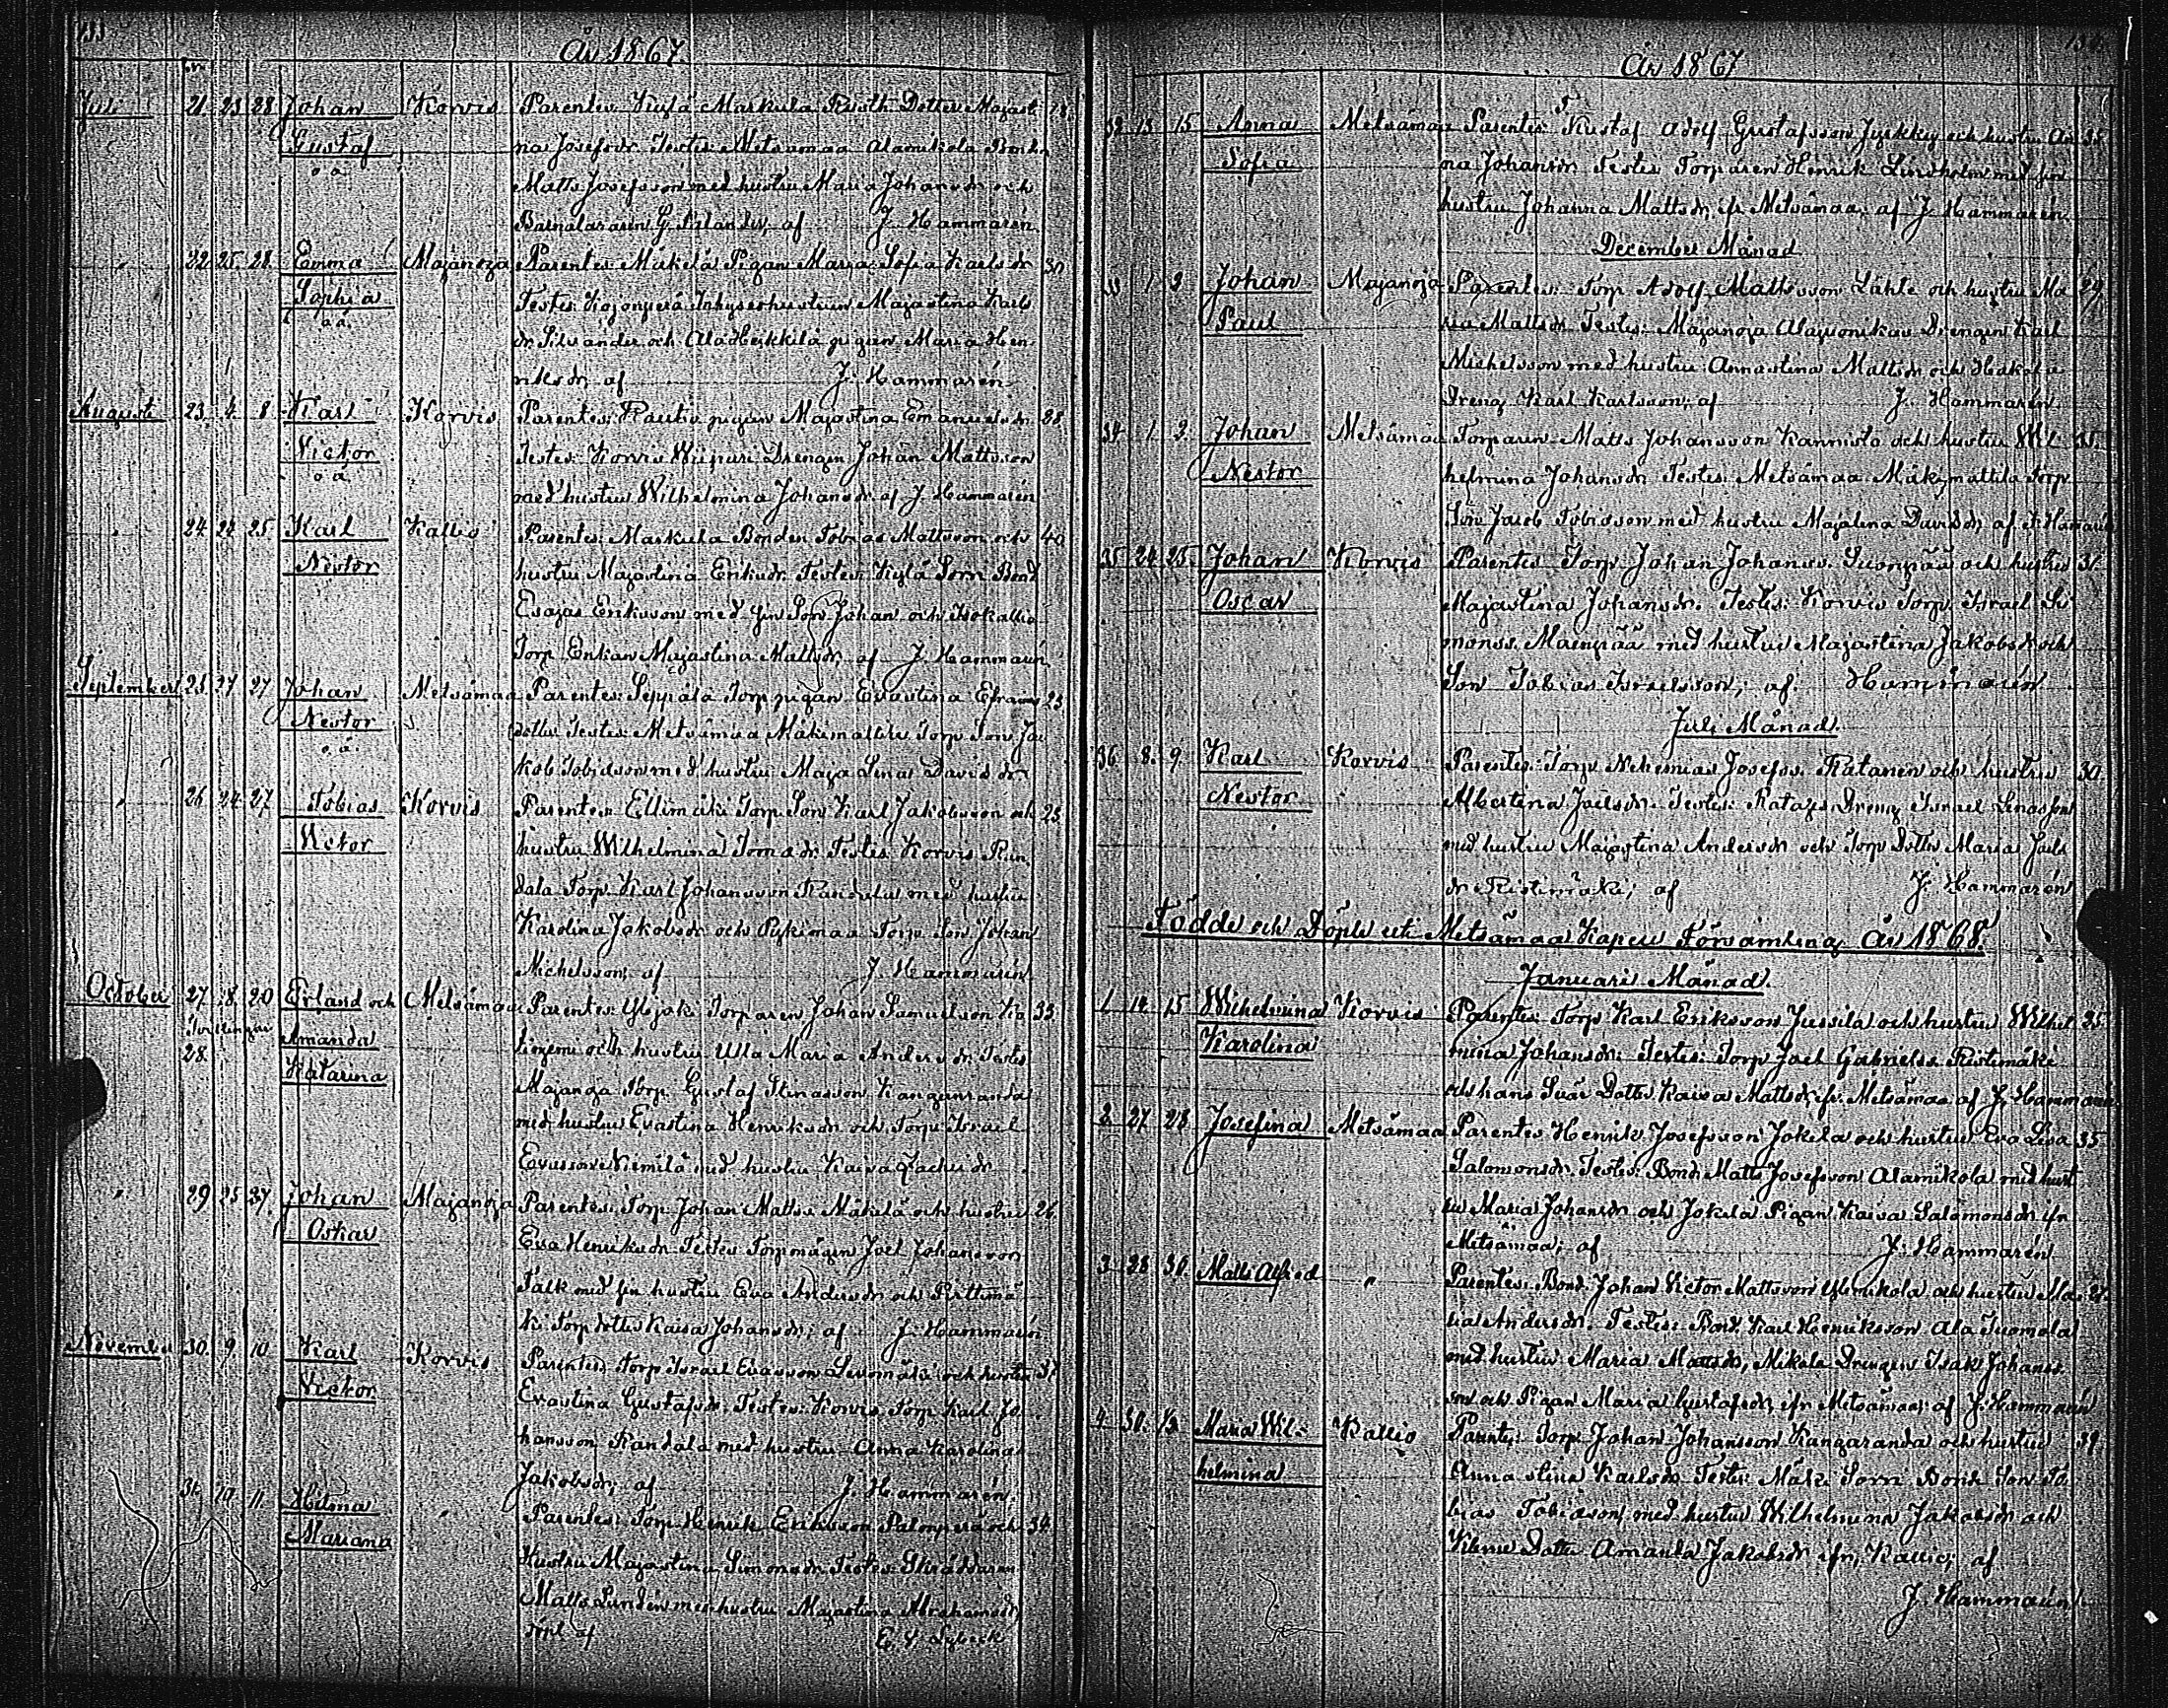 133
År 1867.
Juli 21. 23 28 Johan Korvis Parentes Kylä Markula Rusth Dotter Majasti 28.
Gustaf na Josefsdr. Testes Metsämaa Alamikola Bonden
o ä. Matts Josefsson med hustru Maria Johansdr och
Barnalararen G. Salander, af J. Hammarén
" 22 25. 28. Emma Majanoja Parentes Mäkelä Pigan Maria Sofia Karlsdr 30
Sophia Testes Inhyseshustrun Majastina Karls
o ä. dr. Silvander och Ala Heikkilä pigan Maria Hen
riksdr af J. Hammarén
Augusti 23. 4. 8 Karl Korvis Parentes: Rautio pigan Majastina Emanuelsdr. 28.
Victor Testes: Korvis Wiipuri Drengen Johan Mattsson
o ä. med hustru Wilhelmina Johansdr. af J. Hammarén
" 24. 22 25. Karl Kallio Parentes: Markula Bonden Tobias Mattsson och 40
Nestor hustru Majastina Eriksdr. Testes: Kylä Sorri Bond
Esajas Eriksson med sin Son Johan och Isokallio
Torp. Enkan Majastina Mattsdr, af J. Hammarén
September 25. 27 27 Johan Metsämaa Parentes: Seppälä Torp pigan Evastina Efraims 23.
Nestor dotter Testes: Metsämaa Mäkimattila Torp Son Ja
o. ä. kob Tobiasson med hustru Maja Lena Davidsdr.
" 26 24. 27. Tobias Korvis Parentes: Ellimäki Torp. Son Karl Jakobsson och 23.
Victor hustru Wilhelmina Tomasdr. Testes Korvis Ran
dala Torp. Karl Johansson Randala med hustru
Karolina Jakobsdr och Torp. Son Johan
Michelsson, af J. Hammarén
October 27. 18. 20 Erland och Metsämaa Parentes: Ylijoki Torparen Johan Samuelsson 33.
Tvillingar Amanda och hustru Ulla Maria Andersdr. Testes
28. Katarina Majanoja Torp. Gustaf Stinasson Kangaranda
med hustru Evastina Henriksdr och Torp. Israel
med hustru Kaisa
" 29 25 27. Johan Majanoja Parentes: Torp Johan Matts. Mäkelä och hustru 26.
Oskar Eva Henriksdr. Testes Torpmågen Joel Johansson
Falk med sin hustru Eva Andersdr och Perttimä
ki Torp dotter Kaisa Johansdr; af J. Hammarén
November 30. 9. 10. Karl Korvis Parentes Torp Israel Evasson och hustru 37
Victor Evastina Gustafsdr, Testes: Korvis Torp Karl Jo
hansson Randala med hustru Anna Karolina
Jakobsdr, af J. Hammarén.
31. 10. 11. Hilma " Parentes: Torp Henrik Eriksson Palonperä och 34
Mariana Hustru Majastina Simonsdr. Testes: Skräddaren
Matts Lundén med hustru Majastina Abrahamsdr
döpt af
År 1867
32 13. 15. Anna Metsämaa Parentes: Kustaf Adolf Gustafsson Jyrkky och hustru An 35.
Sofia na Johansdr Testes Torparen Henrik Lindholm med sin
hustru Johanna Mattsdr ifr. Metsämaa, af J. Hammarén
December Månad
33 1. 3. Johan Majanoja Parentes: Torp Adolf Mattsson Lähte och hustru Ma 29.
Paul ria Mattsdr Testes: Majanoja Drengen Karl
Michelsson med hustru Annastina Mattsdr och Hakola
Dreng Karl Karlsson, af J. Hammarén
34 1. 3. Johan Metsämaa Torparen Matts Johansson Kannisto och hustru Wil 35.
Nestor helmina Johansdr Testes: Metsämaa Mäkimattila Torp
Son Jacob Tobiasson med hustru Majalena Davidsdr, af J. Hammarén
35 24. 25. Johan Korvis Parentes Torp Johan Johanss. Suonpää och hustru 31.
Oscar Majastina Johansdr. Testes: Korvis Torp. Israel Si
monss. Maenpää med hustru Majastina Jakobsdr och
Son Tobias Israelsson; af Hammarén
Juli Månad.
36. 8. 9. Karl Korvis Parentes: Torp Nehemias Josefss. Ratanen och hustru 30.
Nestor Albertina Joelsdr. Testes: Dreng Israel
med hustru Majastina Andersdr och Torp Dotter Maria Joels
dr Ristimäki; af J. Hammarén
Födde och Döpte uti Metsämaa Kapell Församling År 1868
Januari Månad.
1. 14. 15 Wilhelmina Korvis Parentes: Torp Karl Eriksson Jussila och hustru Wilhel 25.
Karolina mina Johansdr: Testes: Torp Joel Gabrielss. Ristimäki
och hans Svär Dotter Kaisa Mattsdr, ifr. Metsämaa af J. Hammarén
2. 27. 28 Josefina Metsämaa Parentes Henrik Josefsson Jokela och hustru Eva Lisa 35
Salomonsdr. Testes: Bond. Matts Josefsson Alamikola med hust
ru Maria Johansdr och Jokela Pigan Kaisa Salomonsdr ifr
Metsämaa; af J. Hammarén
3. 28 30. Matts Alfred " Parentes: Bond. Johan Victor Mattsson Ylimikola och hustru Ma 27.
ria Andersdr. Testes: Bond. Karl Henriksson Ala Tuomola
med hustru Maria Mattsdr, Mikola Drengen Isak Johans
son och Pigan Maria Gustafsdr, ifr. Metsämaa; af J. Hammarén
4. 30. 1/3. Maria Wil- Kallio Parentes: Torp. Johan Johansson Kangaranda och hustru 39.
helmina Anna stina Karlsdr. Testes: Mäki Sorri Bond Son To
bias Tobiasson, med hustru Wilhelmina Jakobsdr och
Dotter Amanda Jakobsdr ifr. Kallio; af
J. Hammarén